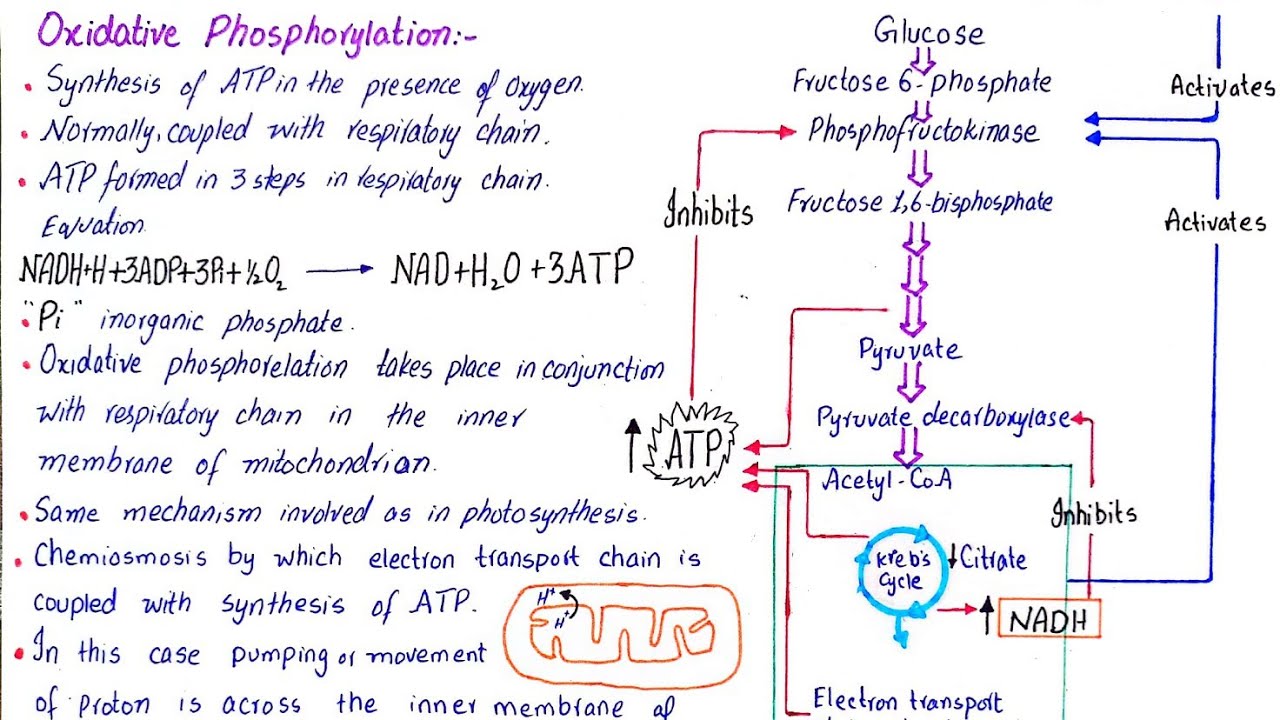 Oxidative Phosphorylation:-
• Synthesis of ATP in the presence of Oxygen.
• Normally, coupled with respiratory chain.
• ATP formed in 3 steps in respiratory chain.
Equation
NADH+H+3ADP+3Pi+½O₂ → NAD+H₂O+3ATP
• "Pi" inorganic phosphate.
• Oxidative phosphorelation takes place in conjunction
with respiratory chain in the inner
membrane of mitochondrian.
• Same mechanism involved as in photosynthesis.
• Chemiosmosis by which electron transport chain is
coupled with synthesis of ATP.
• In this case pumping or movement
of proton is across the inner membrane of
H⁺
H⁺
Glucose
Fructose 6-phosphate
Phosphofructokinase
Fructose 1,6-bisphosphate
Pyruvate
Pyruvate decarboxylase
Acetyl-CoA
Kreb's
Cycle
Citrate
NADH
Electron transport
ATP
Inhibits
Inhibits
Activates
Activates